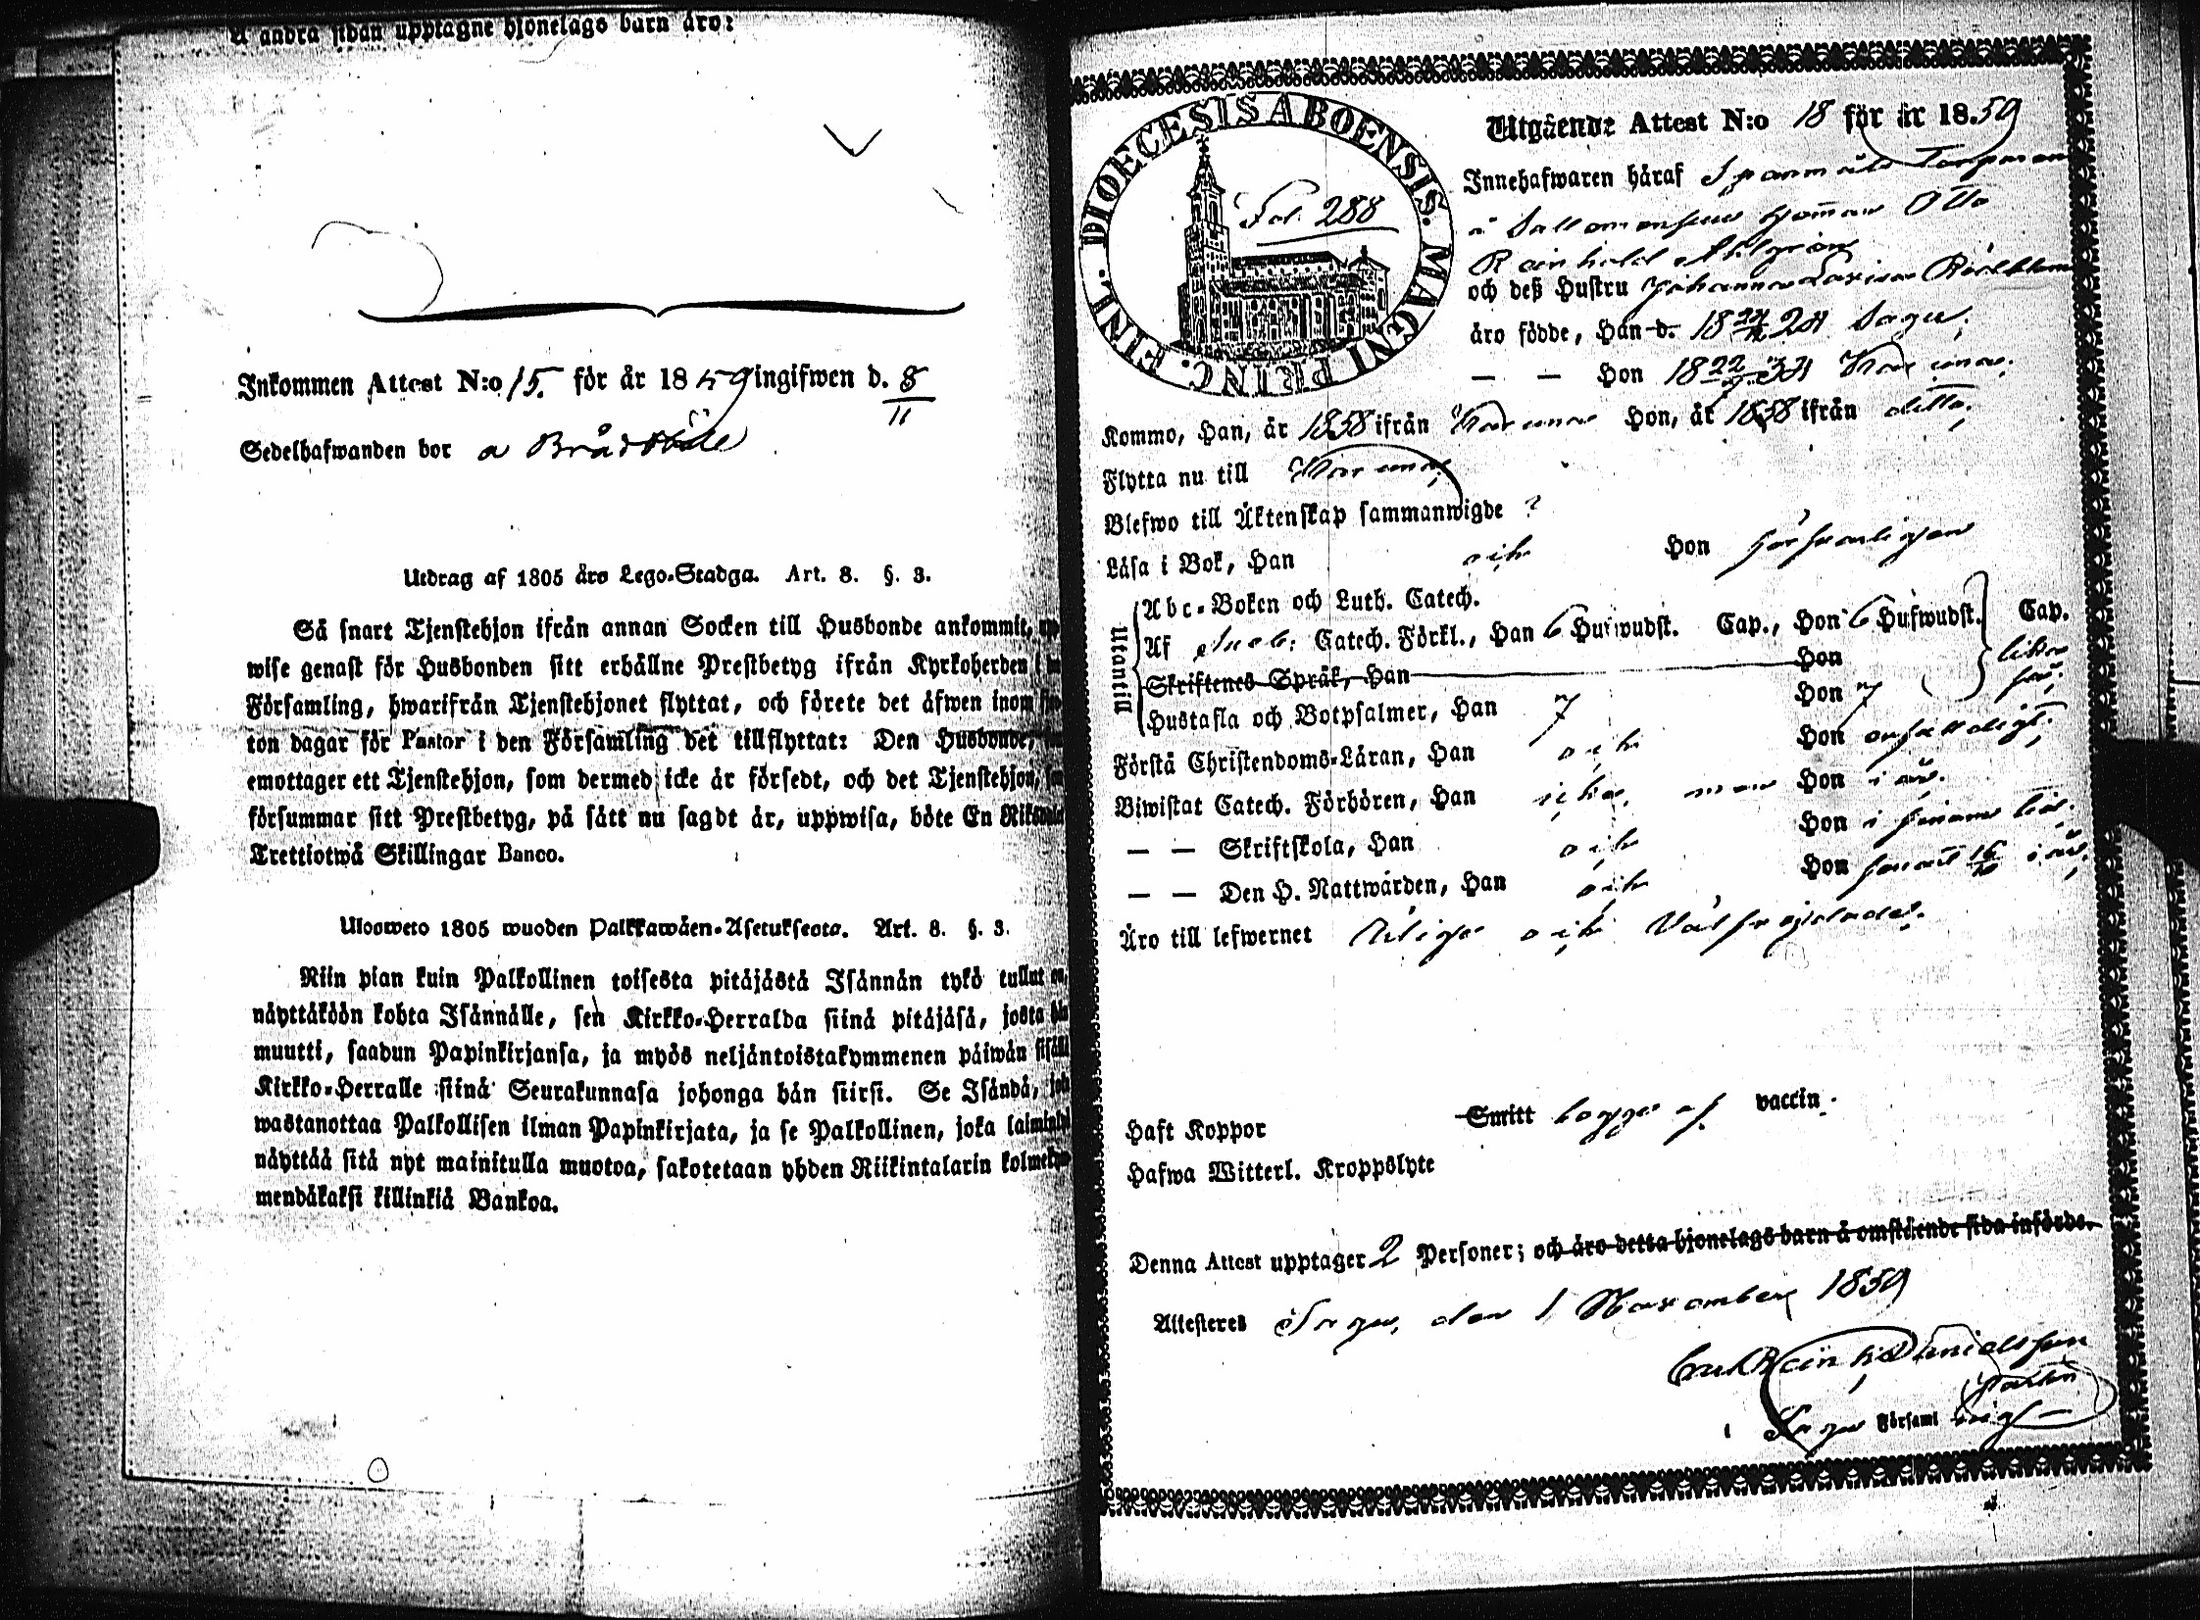 Å andra sidan upptagne hjonelags barn äro:
Inkommen Attest N:o 15. för år 1859 ingifwen d. 8/11
Sedelhafwanden bor a Brådböle
Utdrag af 1805 års Lego-Stadga. Art. 8. §. 3.
Så snart Tjenstehjon ifrån annan Socken till Husbonde ankommit,
wise genast för Husbonden sitt erhållne Prestbetyg ifrån Kyrkoherden i
Församling, hwarifrån Tjenstehjonet flyttat, och förete det äfwen inom
ton dagar för Pastor i den Församling det tillflyttat: Den Husbonde,
emottager ett Tjenstehjon, som dermed icke är försedt, och det Tjenstehjon,
försummar sitt Prestbetyg, på sätt nu sagdt är, uppwisa, böte En
Trettiotwå Skillingar Banco.
Ulosweto 1805 wuoden Palkkawäen-Asetuksesta. Art. 8. §. 3.
Niin pian kuin Palkollinen toisesta pitäjästä Isännän tykö tullut on,
näyttäköön kohta Isännälle, sen Kirkko-Herralda siinä pitäjäsä, josta hän
muutti, saadun Papinkirjansa, ja myös neljäntoistakymmenen päiwän
Kirkko-Herralle siinä Seurakunnasa johonga hän siirsi. Se Isändä,
wastanottaa Palkollisen ilman Papinkirjata, ja se Palkollinen, joka
näyttää sitä nyt mainitulla muotoa, sakotetaan yhden Riikintalarin
mendäkaksi killinkiä Bankoa.
DIOECESIS ABOENSIS. MAGNI PRINC. FINL.
Fol. 288
Utgående Attest N:o 18 för år 1859
Innehafwaren häraf
Otto
Reinhold Ahlgren
och deß Hustru Johanna Lovisa
äro födde, Han d. 18 24 Sagu;
— — Hon 18 Karuna.
Kommo, Han, år 1858 ifrån Karuna Hon, år 1858 ifrån ditto,
Flytta nu till Karuna,
Blefwo till Äktenskap sammanwigde ?
Läsa i Bok, Han och Hon försvarligen
Utantil
Abc-Boken och Luth. Catech.
Af Sveb: Catech. Förkl., Han 6 Hufwudst. Cap., Hon 6 Hufwudst. Cap.
Skriftenes Språk, Han Hon lika
Hustafla och Botpsalmer, Han 7 Hon 7
Förstå Christendoms-Läran, Han och Hon enfaldigt;
Biwistat Catech. Förhören, Han icke, men Hon i år.
— — Skriftskola, Han och Hon i sinom tid;
— — Den H. Nattwarden, Han och Hon senast i år,
Äro till lefwernet ärliga och välfrejdade.
Haft Koppor Smitt begge af vaccin.
Hafwa Witterl. Kroppslyte
Denna Attest upptager 2 Personer; och äro detta hjonelags barn å omstående sida införde.
Attesteres Sagu, den 1 November 1859
Carl Reinh. Danielsson
i Sagu Församl